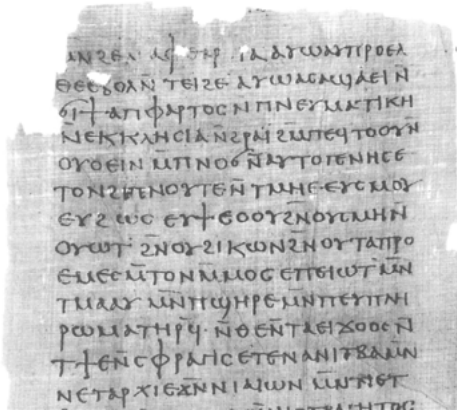 ⲁⲩⲱ ⲁⲩⲡⲣⲟⲉⲗ
ⲑⲉ ⲉⲃⲟⲗ ϩⲛ̄ ⲧⲉⲓϩⲉ ⲁⲩⲱ ⲁⲥⲁϣⲁⲉⲓ ⲛ̄
ϭⲓ ϯⲁⲡⲫⲁⲣⲧⲟⲥ ⲙ̄ⲡⲛⲉⲩⲙⲁⲧⲓⲕⲏ
ⲛⲉⲕⲕⲗⲏⲥⲓⲁ ⲛ̄ϩⲣⲁⲓ̈ ϩⲙ̄ ⲡⲉϥⲧⲟⲟⲩ ⲛ̄
ⲟⲩⲟⲉⲓⲛ ⲙ̄ⲡⲛⲟϭ ⲛ̄ⲁⲩⲧⲟⲅⲉⲛⲏⲥ ⲉ
ⲧⲟⲛϩ ⲡⲛⲟⲩⲧⲉ ⲛ̄ⲧⲙⲏⲉ ⲉⲩⲥⲙⲟⲩ
ⲉⲩϩⲱⲥ ⲉⲩϯ ⲉⲟⲟⲩ ϩⲛ̄ⲟⲩⲥⲙⲏ ⲛ̄
ⲟⲩⲱⲧ ϩⲛ̄ⲟⲩϩⲓⲕⲱⲛ ϩⲛ̄ⲟⲩⲧⲁⲡⲣⲟ
ⲉⲙⲉⲥⲙ̄ⲧⲟⲛ ⲙ̄ⲙⲟⲥ ⲉⲡⲉⲓⲱⲧ ⲙⲛ̄
ⲧⲙⲁⲁⲩ ⲙⲛ̄ ⲡϣⲏⲣⲉ ⲙⲛ̄ ⲡⲉⲩⲡⲗⲏ
ⲣⲱⲙⲁ ⲧⲏⲣϥ̄· ⲛ̄ⲑⲉ ⲛⲧⲁⲉⲓϫⲟⲟⲥ ⲛ̄
ϯⲉ ⲛ̄ⲥⲫⲣⲁⲅⲓⲥ ⲉⲧⲉ ⲛⲁⲛⲓⲧⲃⲁ ⲙⲛ̄
ⲛⲉⲧⲁⲣⲭⲓ ⲉϫⲛ̄ ⲛⲓⲁⲓⲱⲛ ⲙⲛ̄ ⲛⲉⲧ